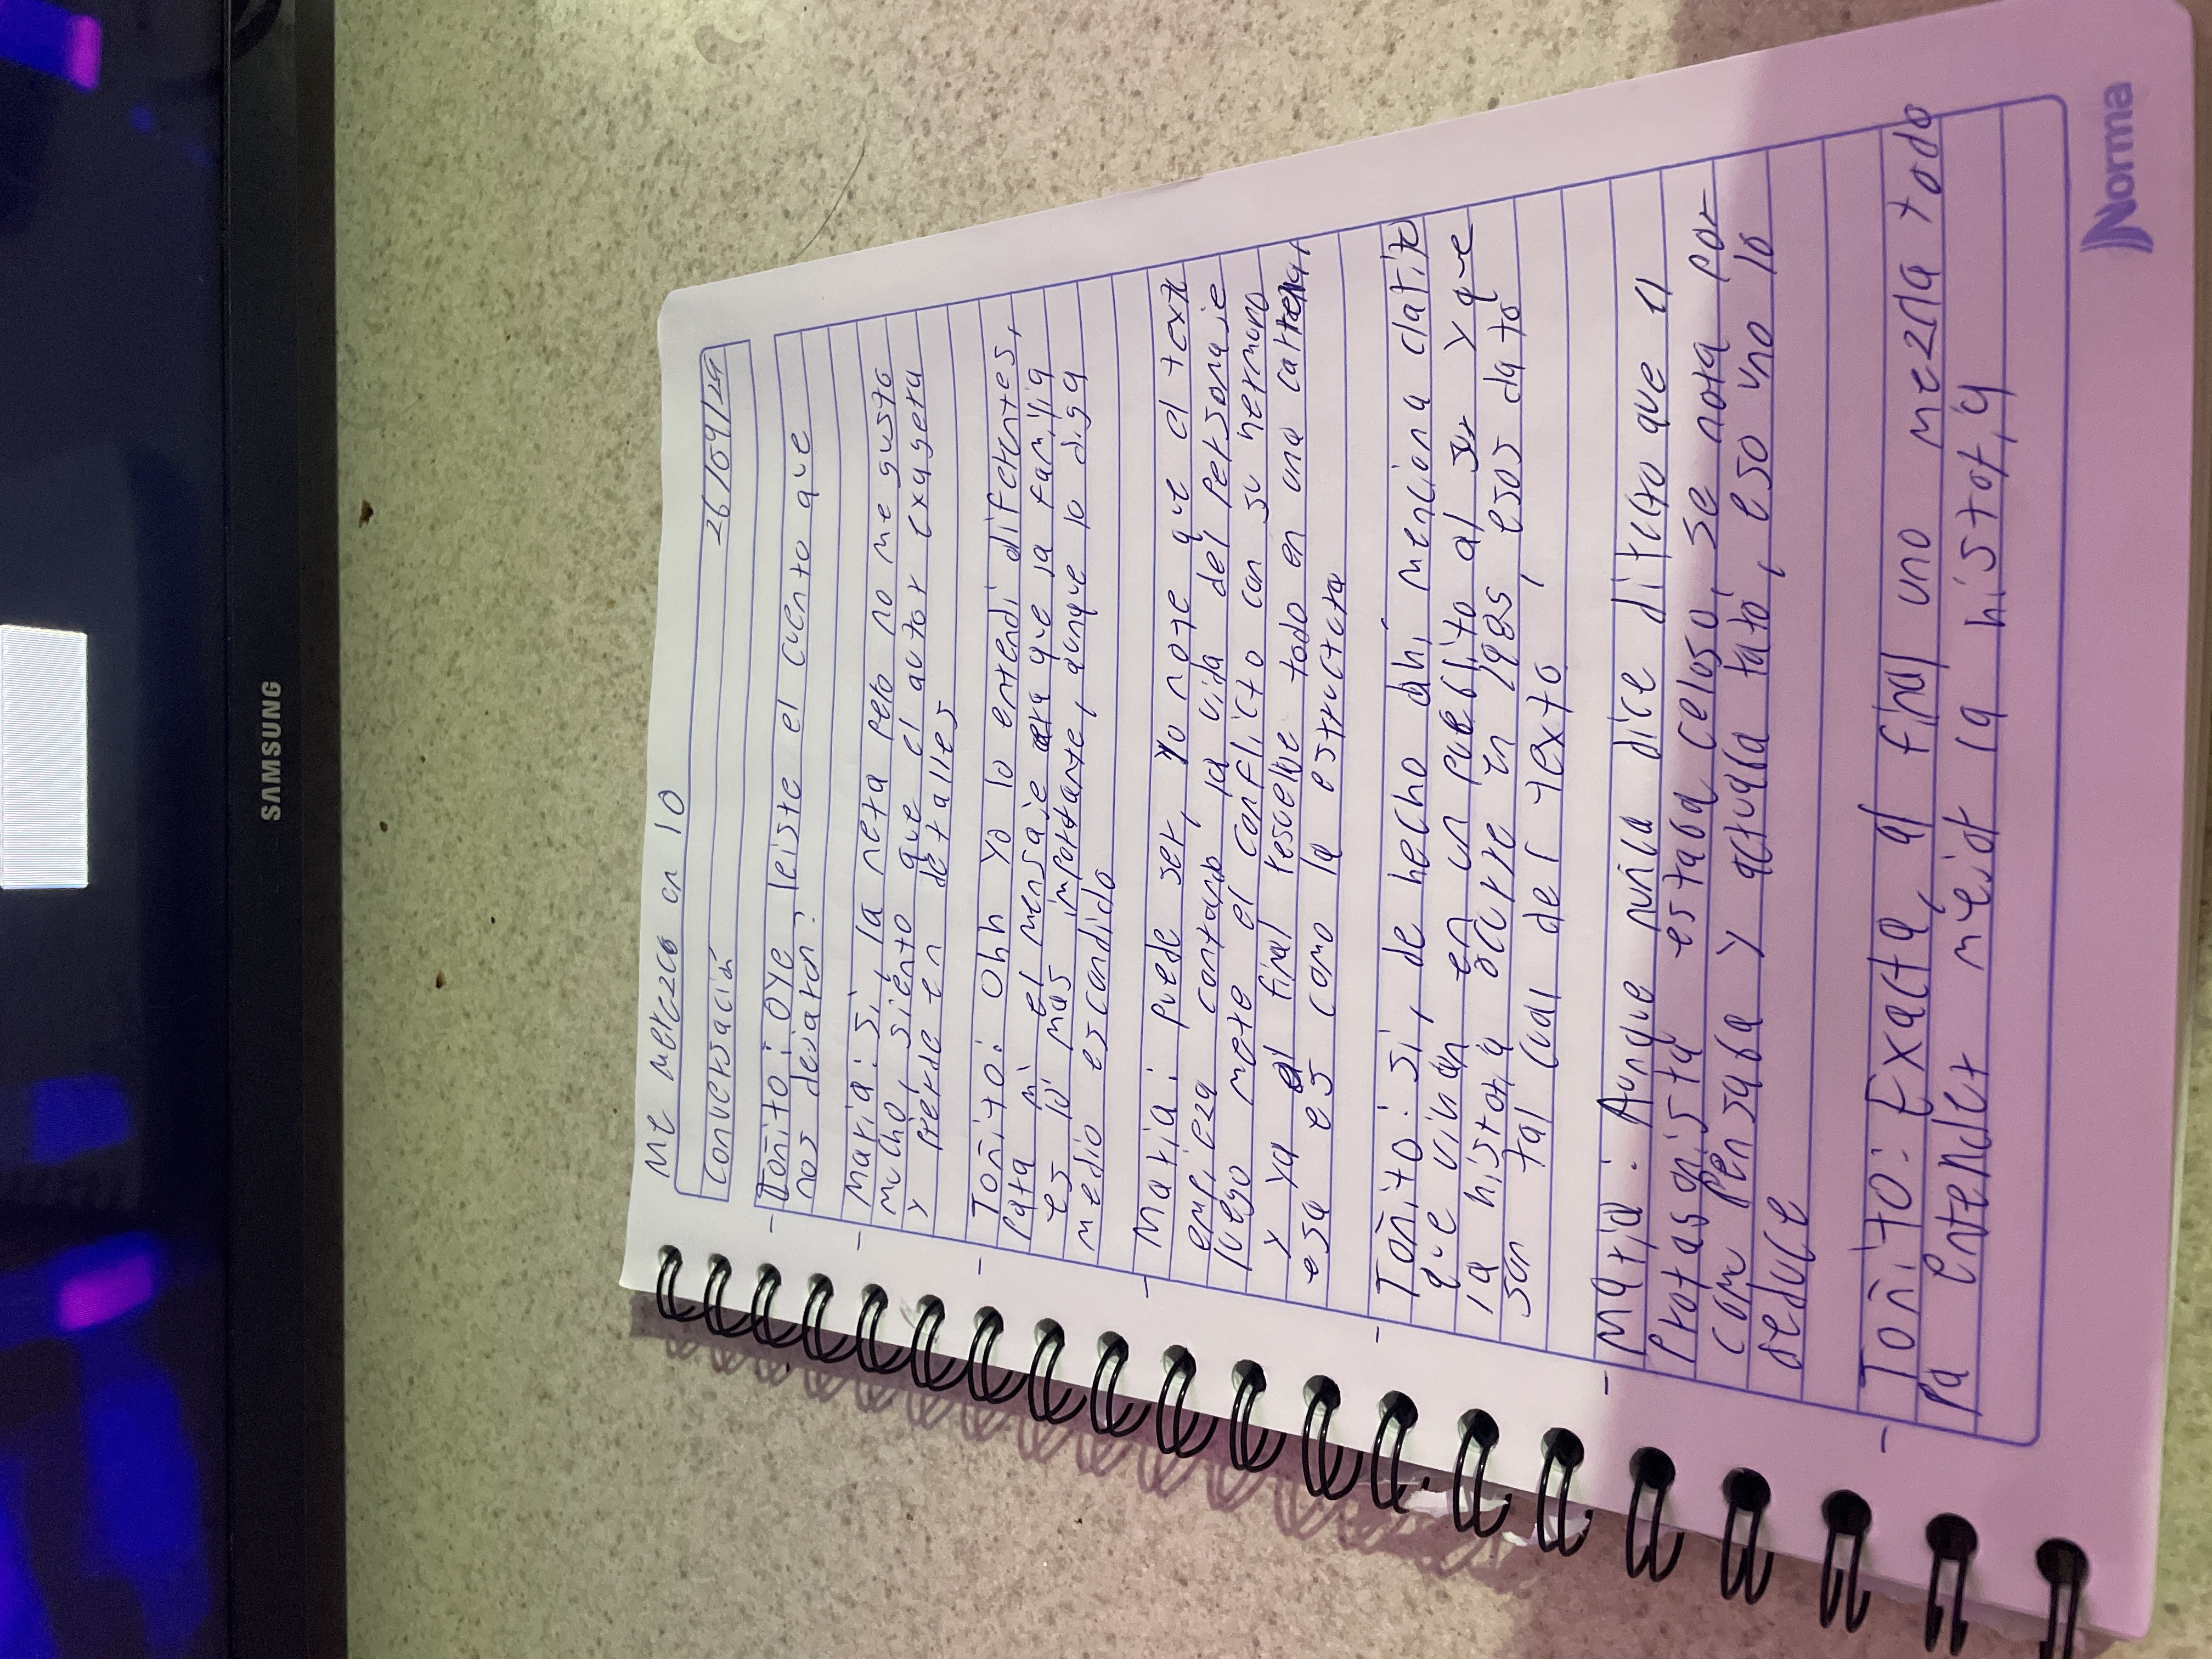 SAMSUNG
Me merezco un 10
Conversación 26/09/24
Toñito: oye leiste el cuento que
nos dejaron?
Maria: Si, la neta pero no me gusto
mucho, siento que el autor exagera
y pierde en detalles
Toñito: Ohh yo lo entendi diferentes,
para mi el mensaje era que la familia
es lo mas importante, aunque lo diga
medio escondido
Maria: puede ser, yo note que el text
empieza contando la vida del personaje
luego mete el conflicto con su hermano
y ya al final resuelve todo en una carta
esa es como la estructura
Toñito: si, de hecho ahi menciona clarito
que vivian en un pueblito al sur y que
la historia ocurre en 1985, esos dato
son tal cual del texto
Maria: Aunque nunca dice directo que el
Protagonista estaba celoso, se nota por
como pensaba y actuaba tato, eso uno lo
deduce
Toñito: Exacta, al final uno mezcla todo
pa entender mejor la historia
Norma